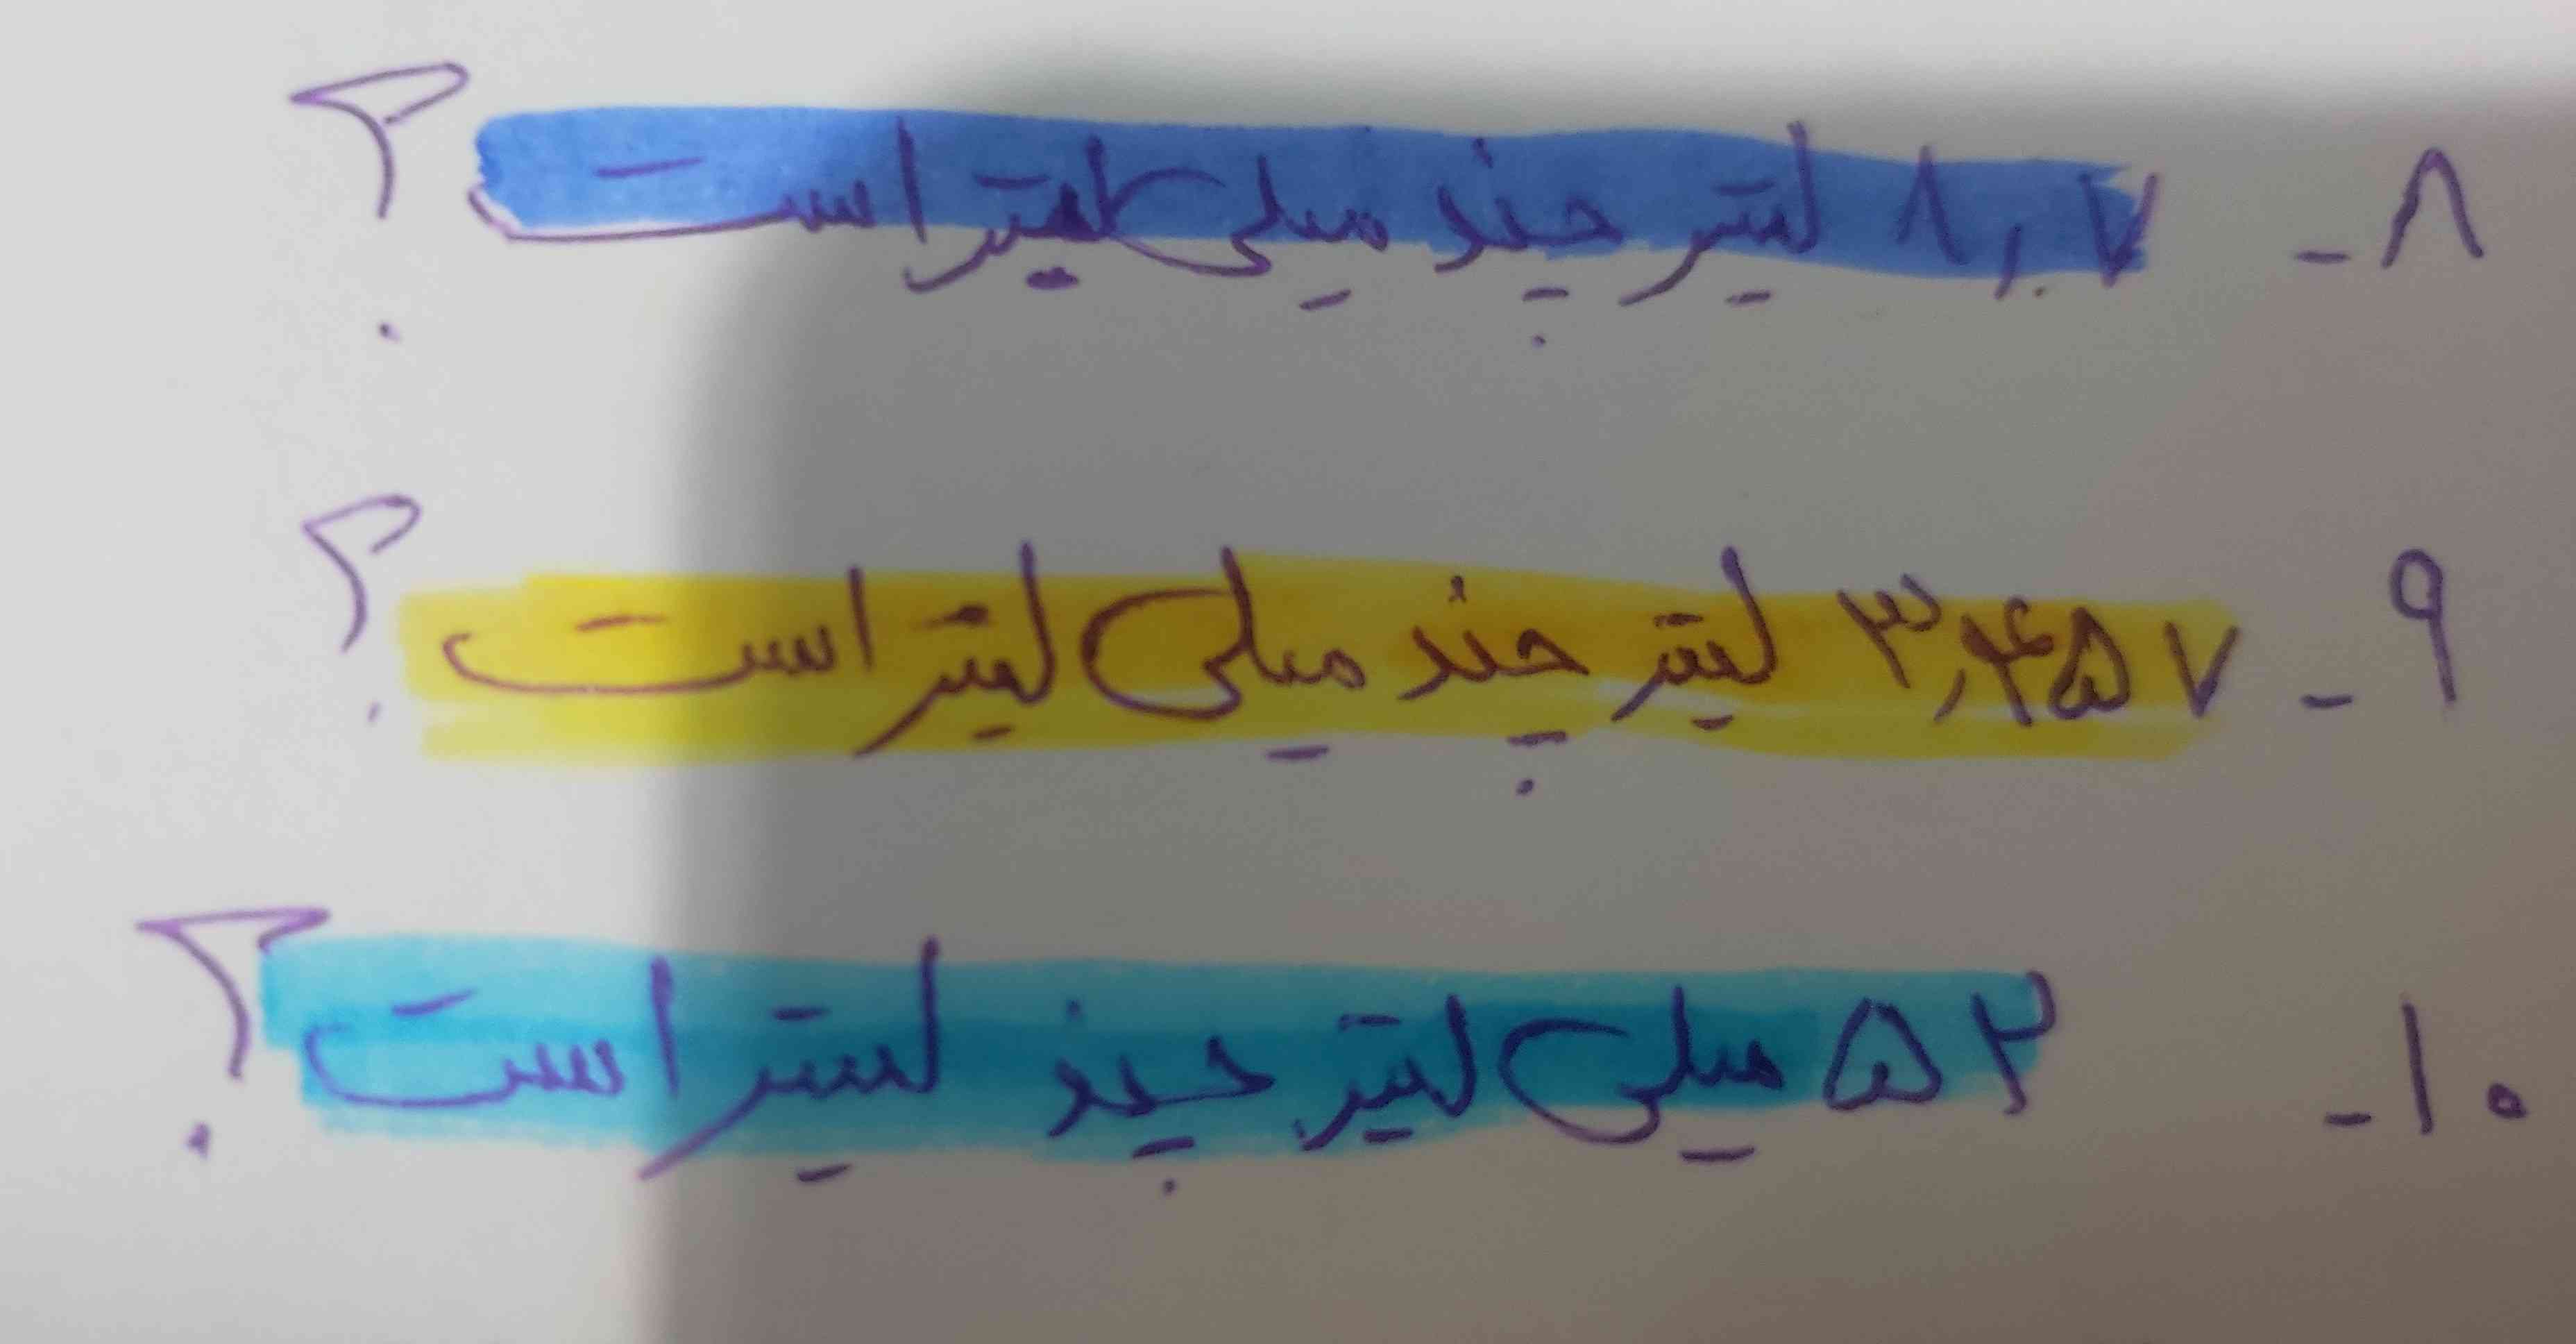 ۸- ۸٫۰۷ لیتر چند میلی لیتر است؟
۹- ۳٫۴۵۷ لیتر چند میلی لیتر است؟
۱۰- ۵۲ میلی لیتر چند لیتر است؟